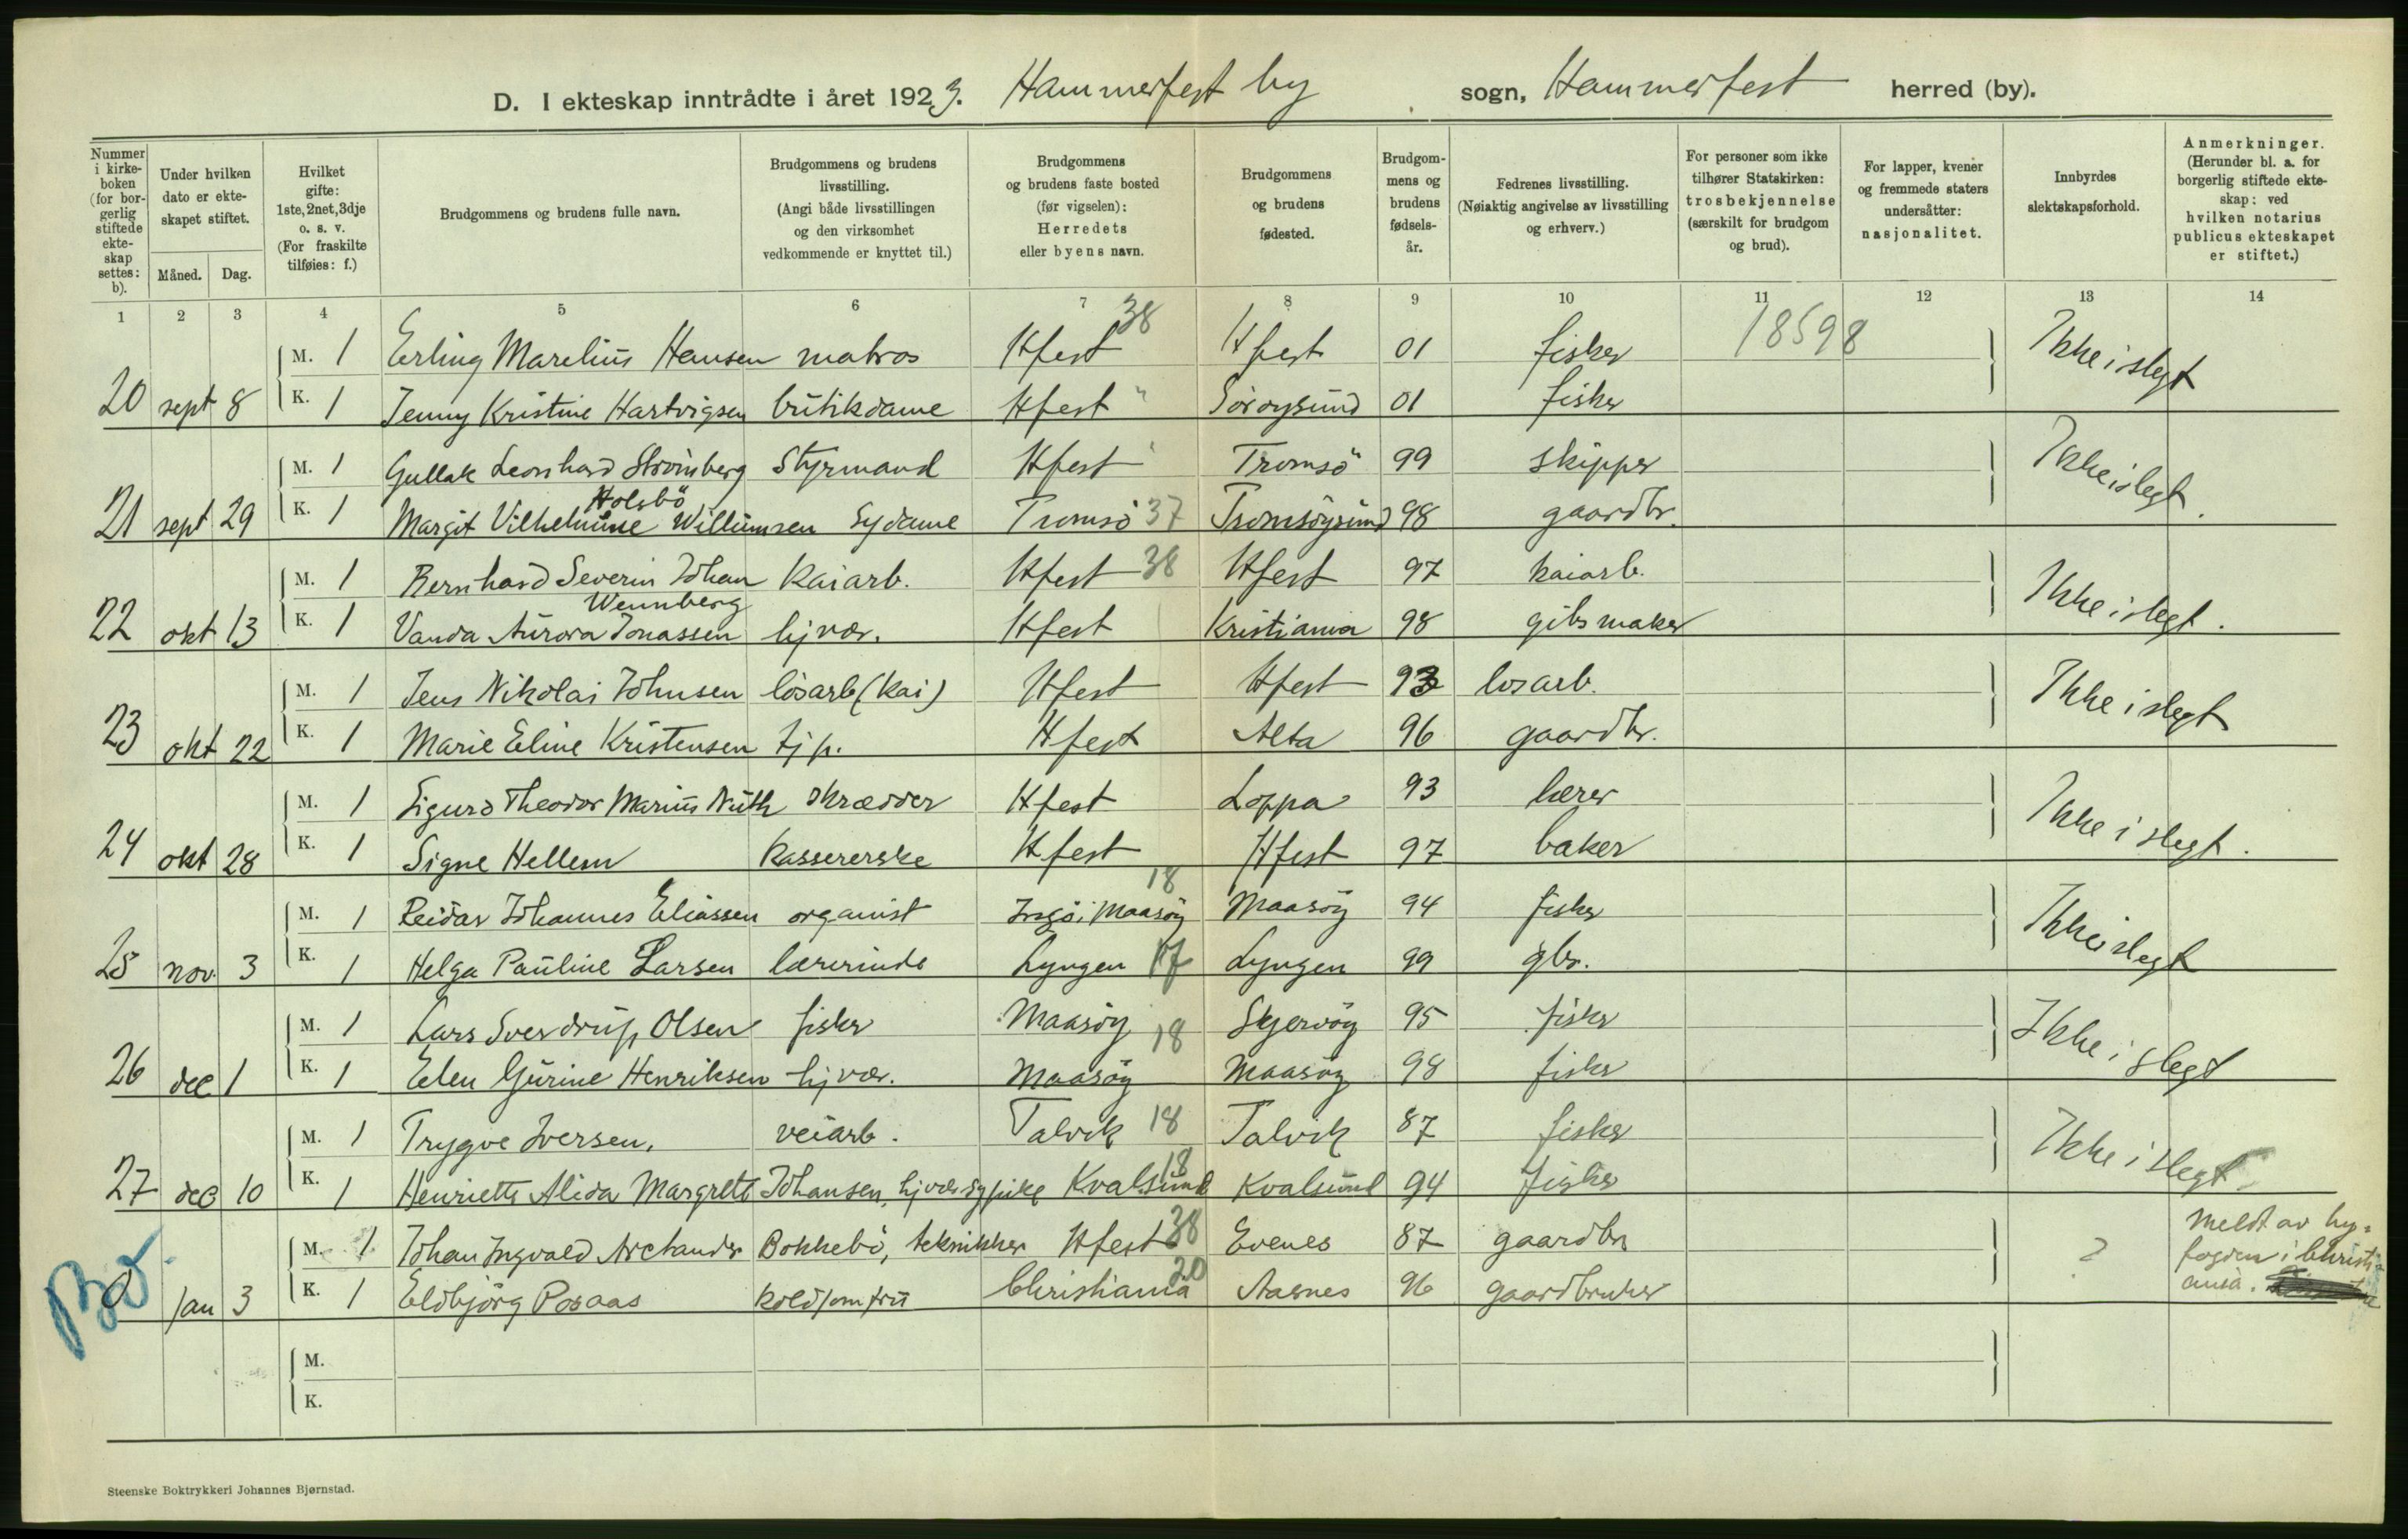 D. I ekteskap inntrådte i året 1923. Hammerfest by sogn, Hammerfest herred (by).
Nummer i kirkeboken (for borgerlig stiftede ekteskap settes: b).
Under hvilken dato er ekteskapet stiftet.
Måned. Dag.
Hvilket gifte: 1ste, 2net, 3dje o. s. v. (For fraskilte tilføies: f.)
Brudgommens og brudens fulle navn.
Brudgommens og brudens livsstilling. (Angi både livsstillingen og den virksomhet vedkommende er knyttet til.)
Brudgommens og brudens faste bosted (før vigselen): Herredets eller byens navn.
Brudgommens og brudens fødested.
Brudgommens og brudens fødselsår.
Fedrenes livsstilling. (Nøiaktig angivelse av livsstilling og erhverv.)
For personer som ikke tilhører Statskirken: trosbekjennelse (særskilt for brudgom og brud).
For lapper, kvener og fremmede staters undersåtter: nasjonalitet.
Innbyrdes slektskapsforhold.
Anmerkninger. (Herunder bl. a. for borgerlig stiftede ekteskap: ved hvilken notarius publicus ekteskapet er stiftet.)
1 2 3 4 5 6 7 8 9 10 11 12 13 14
M. 1 Erling Marelius Hansen matros Hfest 38 Hfest 01 fisker 18598 Ikke i slegt
20 sept 8 K. 1 Jenny Kristine Hartvigsen butikdame Hfest " Sörøysund 01 fisker
M. 1 Gullak Leonhard Strömberg Styrmand Hfest " Tromsö 99 skipper Ikke i slegt.
Holsbö
21 sept 29 K. 1 Margit Vilhelmine Willumsen Sydame Tromsö 37 Tromsöysund 98 gaardbr.
M. 1 Bernhard Severin Johan Kaiarb. Hfest 38 Hfest 97 kaiarb. Ikke i slegt.
Wennberg
22 okt 13 K. 1 Vanda Aurora Jonassen hj vær. Hfest Kristiania 98 gibsmaker
M. 1 Jens Nikolai Johnsen lösarb (kai) Hfest Hfest 93 losarb. Ikke i slegt
23 okt 22 K. 1 Marie Eline Kristensen tj p. Hfest Alta 96 gaardbr.
M. 1 Sigurd Theodor Marius Nuth skrædder Hfest Loppa 93 lærer Ikke i slegt.
24 okt 28 K. 1 Signe Hellem Kassererske Hfest Hfest 97 baker
M. 1 Reidar Johannes Eliassen organist Ingö i Maasöy 18 Maasöy 94 fisker Ikke i slegt
25 nov. 3 K. 1 Helga Pauline Larsen lærerinde Lyngen 17 Lyngen 99 gbr.
M. 1 Lars Sverdrup Olsen fisker Maasöy 18 Skjervöy 95 fisker Ikke i slegt
26 dec 1 K. 1 Elen Gurine Henriksen hj vær. Maasöy Maasöy 98 fisker
M. 1 Trygve Iversen. veiarb. Talvik 18 Talvik 87 fisker Ikke i slegt
27 dec 10 K. 1 Henriette Alida Margrete Johansen, hj vær sypike Kvalsund 18 Kvalsund 94 fisker
M. 1 Johan Ingvald Archander Bokkebö, tekniker Hfest 38 Evenes 87 gaardbr ? Meldt av by-
fogden i Christi-
ania.
Jan 3 K. 1 Eldbjörg Posaas koldjomfru Christiania 20 Aasnes 96 gaardbruker
M.
K.
Steenske Boktrykkeri Johannes Bjørnstad.